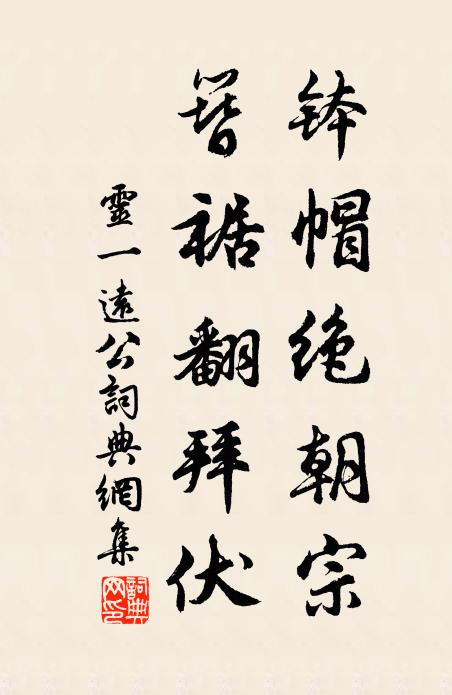 钵帽绝朝宗
簪裾翻拜伏
靈一遠公詞典網集
詞典網印